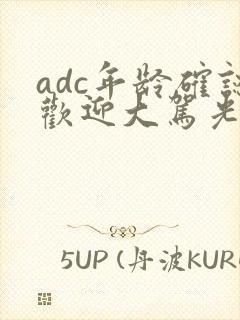 adc年龄確認
歡迎大駕光
5UP (丹波KUR